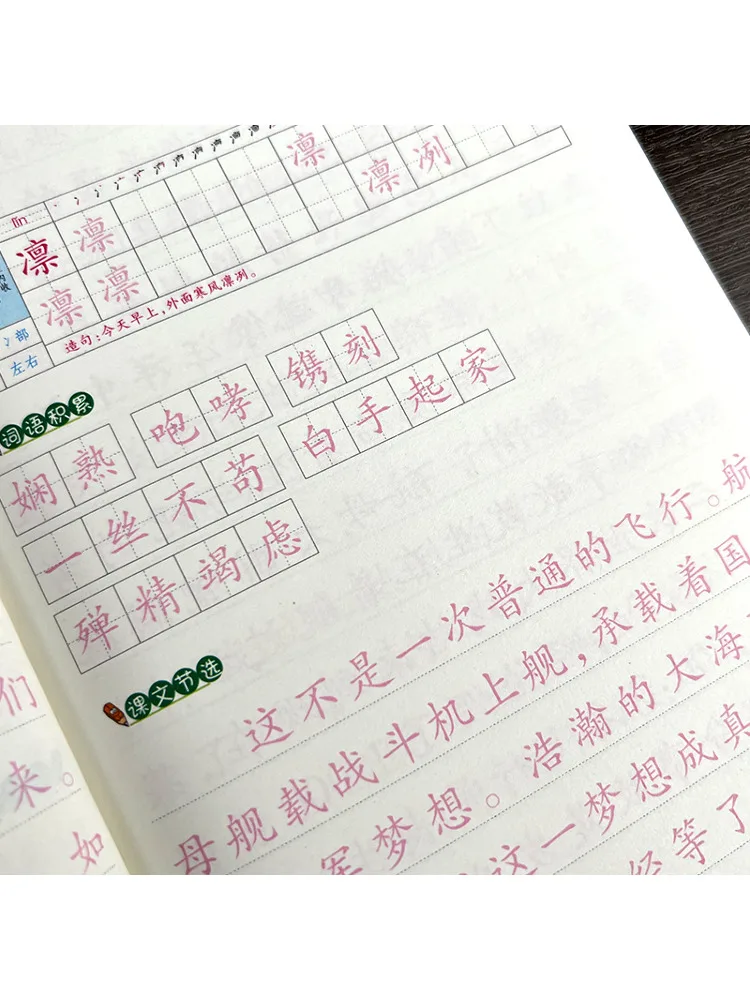 lǐn
凛 凛 凛 凛 冽
凛 凛
冫部
左右
造句:今天早上,外面寒风凛冽。
词语积累
娴熟 咆哮 镌刻
一丝不苟 白手起家
殚精竭虑
课文节选
这不是一次普通的飞行。航
母舰载战斗机上舰,承载着国
军梦想。浩瀚的大海
这一梦想成真
经等了
们
来。
如